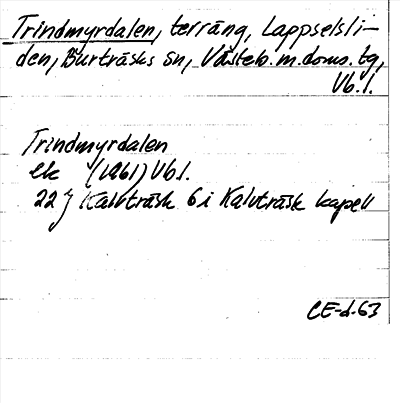 Trindmyrdalen, terräng, Lappselsli-
den, Burträsks sn, Västeb. m. doms. tg,
Vb. l.
Trindmyrdalen
ek (1961) Vb. l.
22 J Kalvträsk 6 i Kalvträsk kapell
CE-d-63